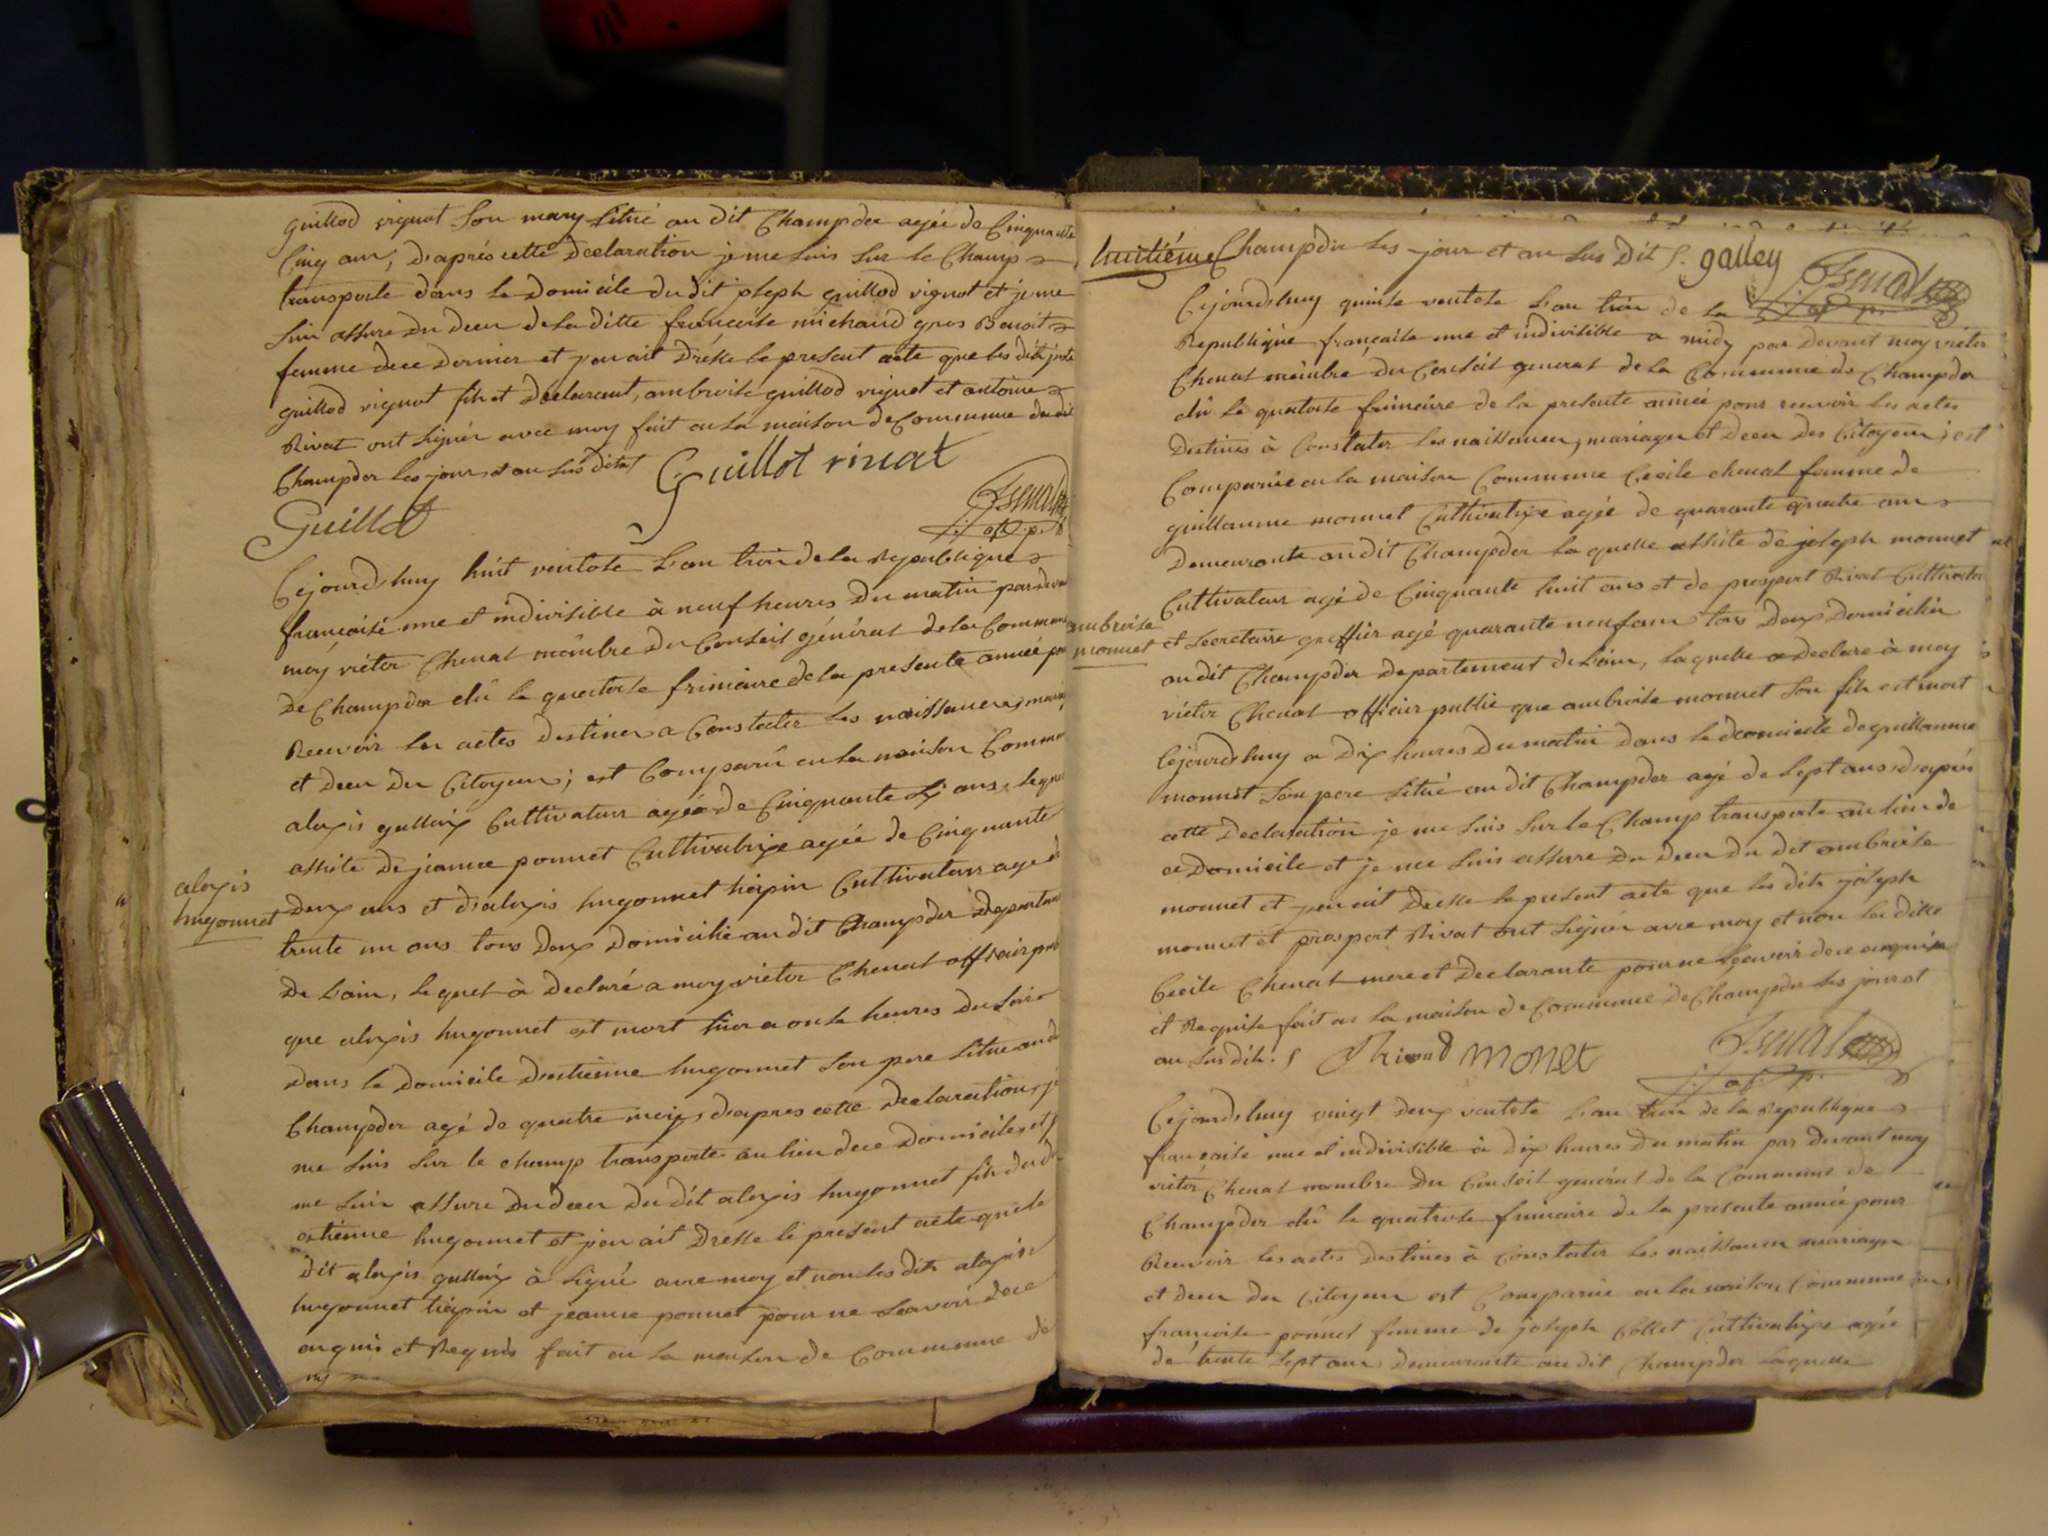 guillod vignat son mary situé au dit Champdor agée de Cinquante
Cinq ans, d'aprés cette Declaration je me suis sur le Champ
transporté dans le Domicile du dit joseph guillod vignat et je me
suis assuré du deces de la ditte françoise michaud gros Benoit
femme de ce dernier et j'en ait dressé le present acte que les dits joseph
guillod vignat fils et Declarant, ambroise guillod vignat et antoine
Rivat ont signés avec moy fait en la maison de Commune du dit
Champdor les jours et an sus dits
Guillot rivat
Guillot
Cejourdshuy huit ventose L'an trois de la Republique
françoise une et indivisible à neuf heures du matin par devant
moy victor Chenat membre du Conseil général de la Commune
de Champdor elû le quatorse frimaire de la presente année pour
Recevoir les actes destines a Constater les naissances, mariages
et deces des Citoyens; est Comparû en la maison Commune
alexis galloix Cultivateur agée de Cinquante six ans, lequel
assité de jeanne ponnet Cultivatrixe agée de Cinquante
deux ans et d'alexis hugonnet Cultivateur agé de
alexis
hugonnet
trente un ans tous deux Domicilié au dit Champdor departement
de L'ain, lequel à declaré a moy victor Chenat officier public
que alexis hugonnet est mort hier a onse heures du soir
dans le Domicile d'estienne hugonnet son pere situé au dit
Champdor agé de quatre mois, d'apres cette declaration, je
me suis sur le champ transporté au lieu de ce Domicile, et je
me suis assuré du deces du dit alexis hugonnet fils du dit
estienne hugonnet et j'en ait dressé le present acte que le
dit alexis galloix à signé avec moy et non les dits alexis
hugonnet et jeanne ponnet pour ne scavoir de ce
enquis et Requis fait en la maison de Commune de
huitiéme Champdor les jour et an sus dit s. galley
Cejourdshuy quinse ventose L'an trois de la
Republique françoise une et indivisible a midy par devant moy victor
Chenat membre du Conseil general de la Commune de Champdor
elû le quatorse frimaire de la presente année pour recevoir les actes
destines à Constater les naissances, mariages et deces des Citoyens; est
Comparüe en la maison Commune Cecile chenat femme de
guillaume monnet Cultivatrixe agée de quarante quatre ans
demeurante au dit Champdor la quelle assité de joseph monnet
Cultivateur agé de Cinquante huit ans et de prospert Rivat Cultivateur
ambroise
monnet
et secretaire greffier agé quarante neuf ans tous deux domiciliés
au dit Champdor departement de L'ain, laquelle a declaré à moy
victor Chenat officier public que ambroise monnet son fils est mort
Cejourdshuy a dix heures du matin dans le domicile de guillaume
monnet son pere situé au dit Champdor agé de sept ans, d'aprés
cette declaration je me suis sur le Champ transporté au lieu de
ce domicile et je me suis assuré du deces du dit ambroise
monnet et j'en ait dressé le present acte que les dits joseph
monnet et prospert Rivat ont signés avec moy et non la ditte
Cecile Chenat mere et declarante pour ne scavoir de ce enquise
et Requise fait en la maison de Commune de Champdor les jour et
an sus dits. s Rivat monet
Cejourdshuy vingt deux ventose L'an trois de la Republique
françoise une et indivisible à dix heures du matin par devant moy
victor Chenat membre du Conseil general de la Commune de
Champdor elû le quatorse frimaire de la presente année pour
Recevoir les actes destines à Constater les naissances mariages
et deces des Citoyens est Comparüe en la maison Commune
françoise ponnet femme de joseph Collet Cultivatrixe agée
de trente sept ans demeurante au dit Champdor laquelle